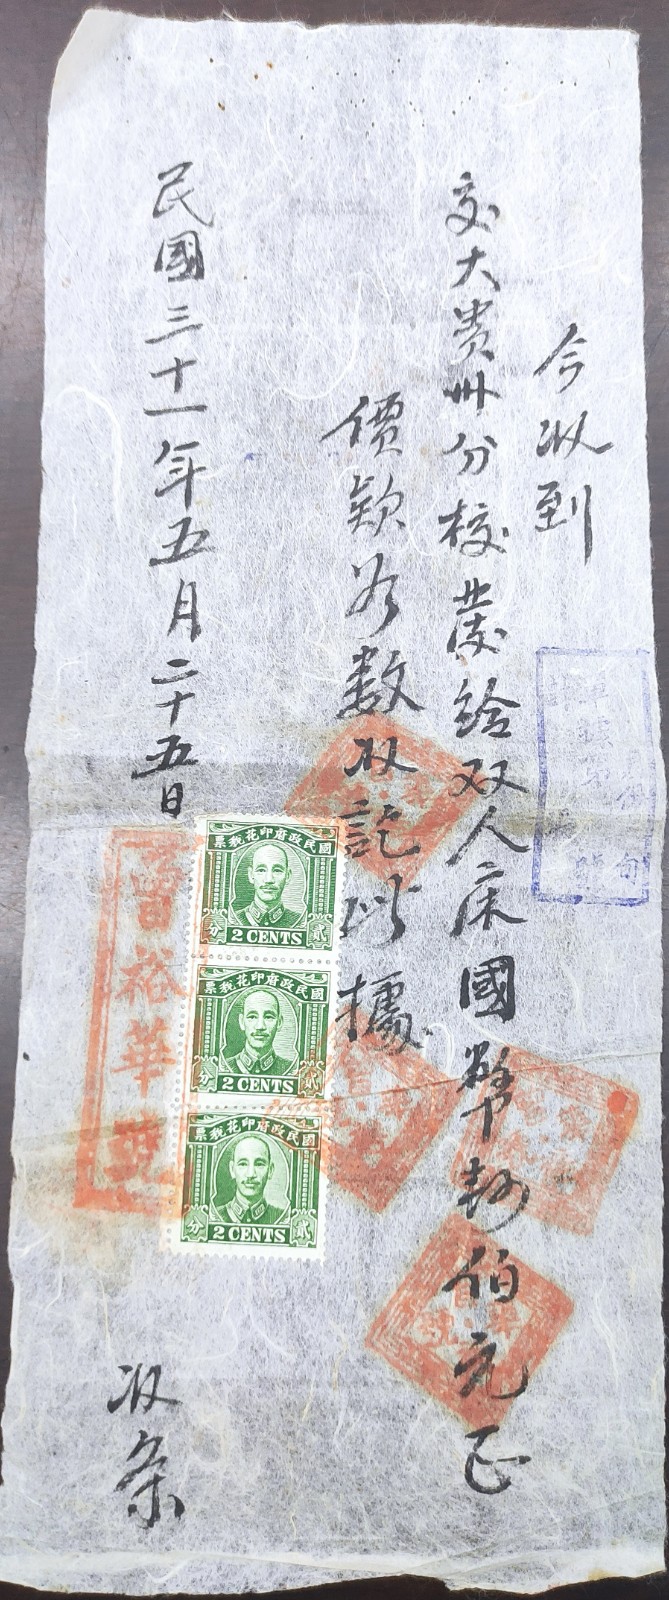 今收到
交大贵州分校發给双人床國幣
伯元正
價欵
數收訖此據
民國三十一年五月二十五日
曾裕華號
收条
國民政府印花税票
貳分
2 CENTS
國民政府印花税票
貳分
2 CENTS
國民政府印花税票
貳分
2 CENTS